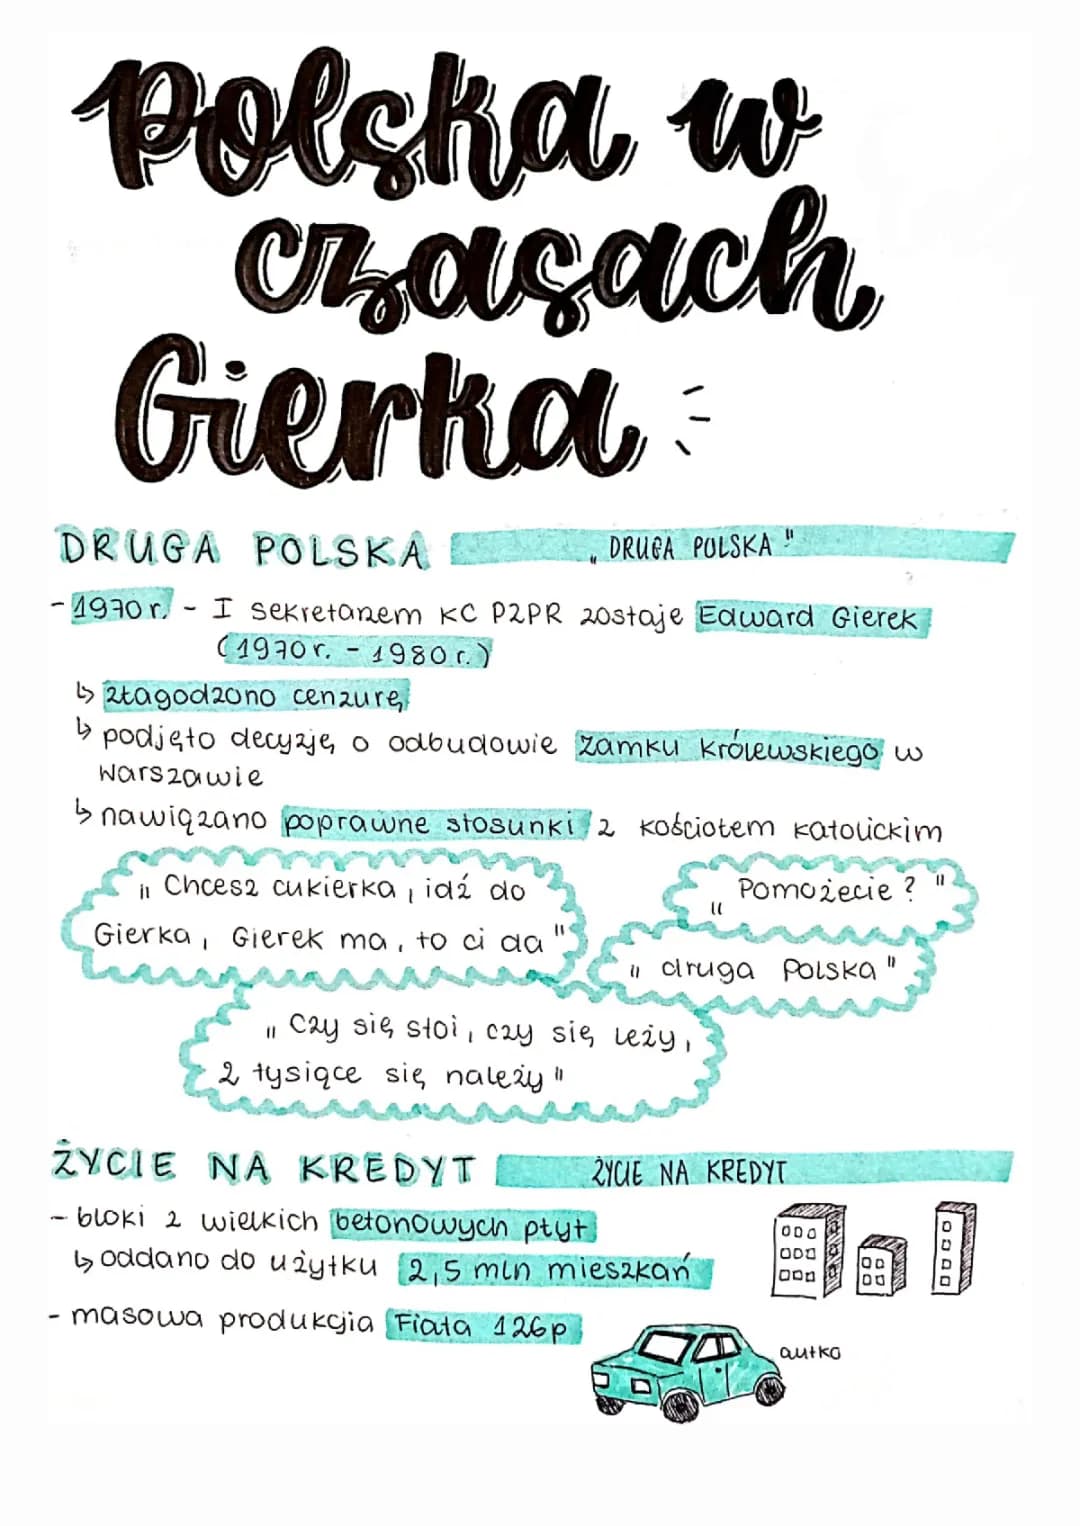 Polska w
czasach
Gierka
DRUGA POLSKA „DRUGA POLSKA"
- 1970 r. - I sekretarzem KC PZPR zostaje Edward Gierek
(1970 r. - 1980 r.)
↳ złagodzono cenzurę
↳ podjęto decyzję o odbudowie Zamku Królewskiego w
Warszawie
↳ nawiązano poprawne stosunki z kościołem katolickim
„Chcesz cukierka, idź do
Gierka, Gierek ma, to ci da"
„Pomożecie?"
„druga Polska"
„Czy się stoi, czy się leży,
2 tysiące się należy"
ŻYCIE NA KREDYT ŻYCIE NA KREDYT
- bloki z wielkich betonowych płyt
↳ oddano do użytku 2,5 mln mieszkań
- masowa produkcjia Fiata 126p
autko